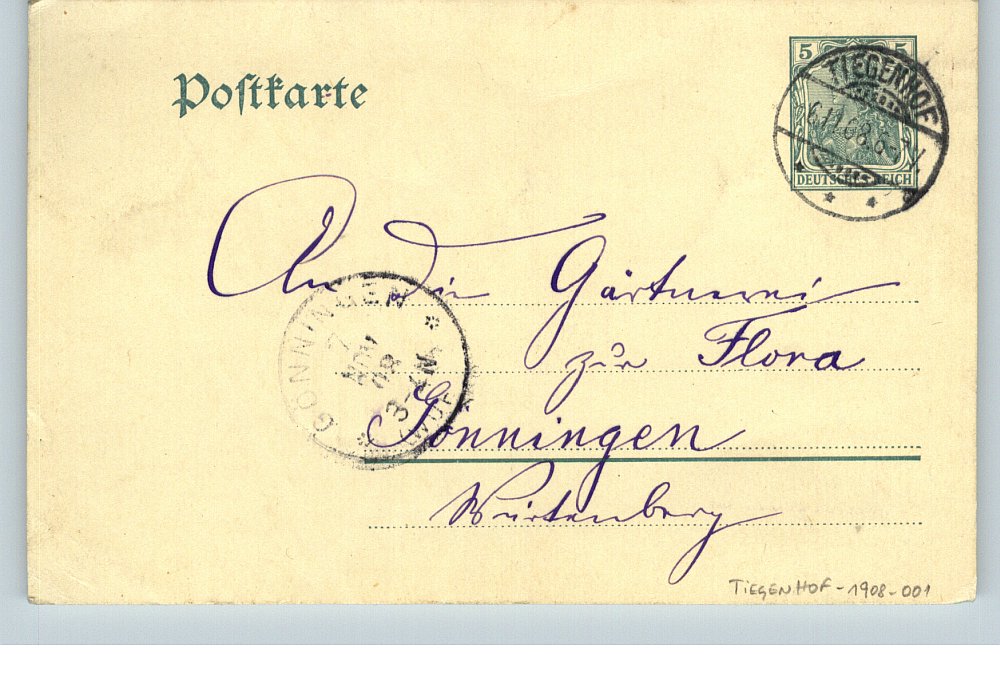 Postkarte
5 5
DEUTSCHES REICH
TIEGENHOF
6.11.08.6-7
An die Gärtnerei
zur Flora
Gönningen
Würtenberg
GÖNNINGEN
7
NOV
08
3-4 N
TIEGENHOF-1908-001